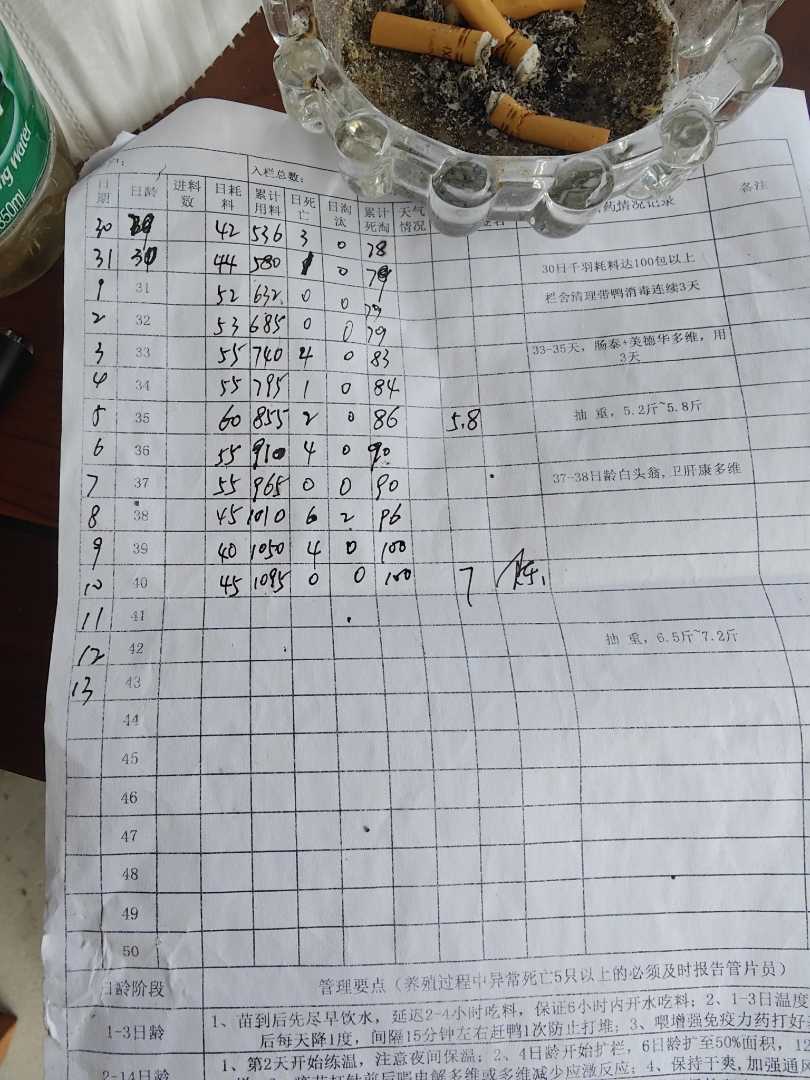 ng Water
350ml
入栏总数:
日期 日龄 进料数 日耗料 累计用料 日死亡 日淘汰 累计死淘 天气情况 药情况记录 备注
30 42 536 3 0 78
31 30 44 580 1 0 79 30日千羽耗料达100包以上
1 31 52 632 0 0 79 栏舍清理带鸭消毒连续3天
2 32 53 685 0 0 79
3 33 55 740 4 0 83 33-35天，肠泰+美德华多维，用3天
4 34 55 795 1 0 84
5 35 60 855 2 0 86 5.8 抽 重，5.2斤~5.8斤
6 36 55 910 4 0 90
7 37 55 965 0 0 90 37-38日龄白头翁，卫肝康多维
8 38 45 1010 6 2 96
9 39 40 1050 4 0 100
10 40 45 1095 0 0 100 7
11 41
12 42 抽 重，6.5斤~7.2斤
13 43
44
45
46
47
48
49
50
日龄阶段 管理要点（养殖过程中异常死亡5只以上的必须及时报告管片员）
1-3日龄 1、苗到后先尽早饮水，延迟2-4小时吃料，保证6小时内开水吃料；2、1-3日温度
后每天降1度，间隔15分钟左右赶鸭1次防止打堆；3、喂增强免疫力药打好
2-14日龄 1、第2天开始练温，注意夜间保温；2、4日龄开始扩栏，6日龄扩至50%面积，12
防应激反应；4、保持干爽,加强通